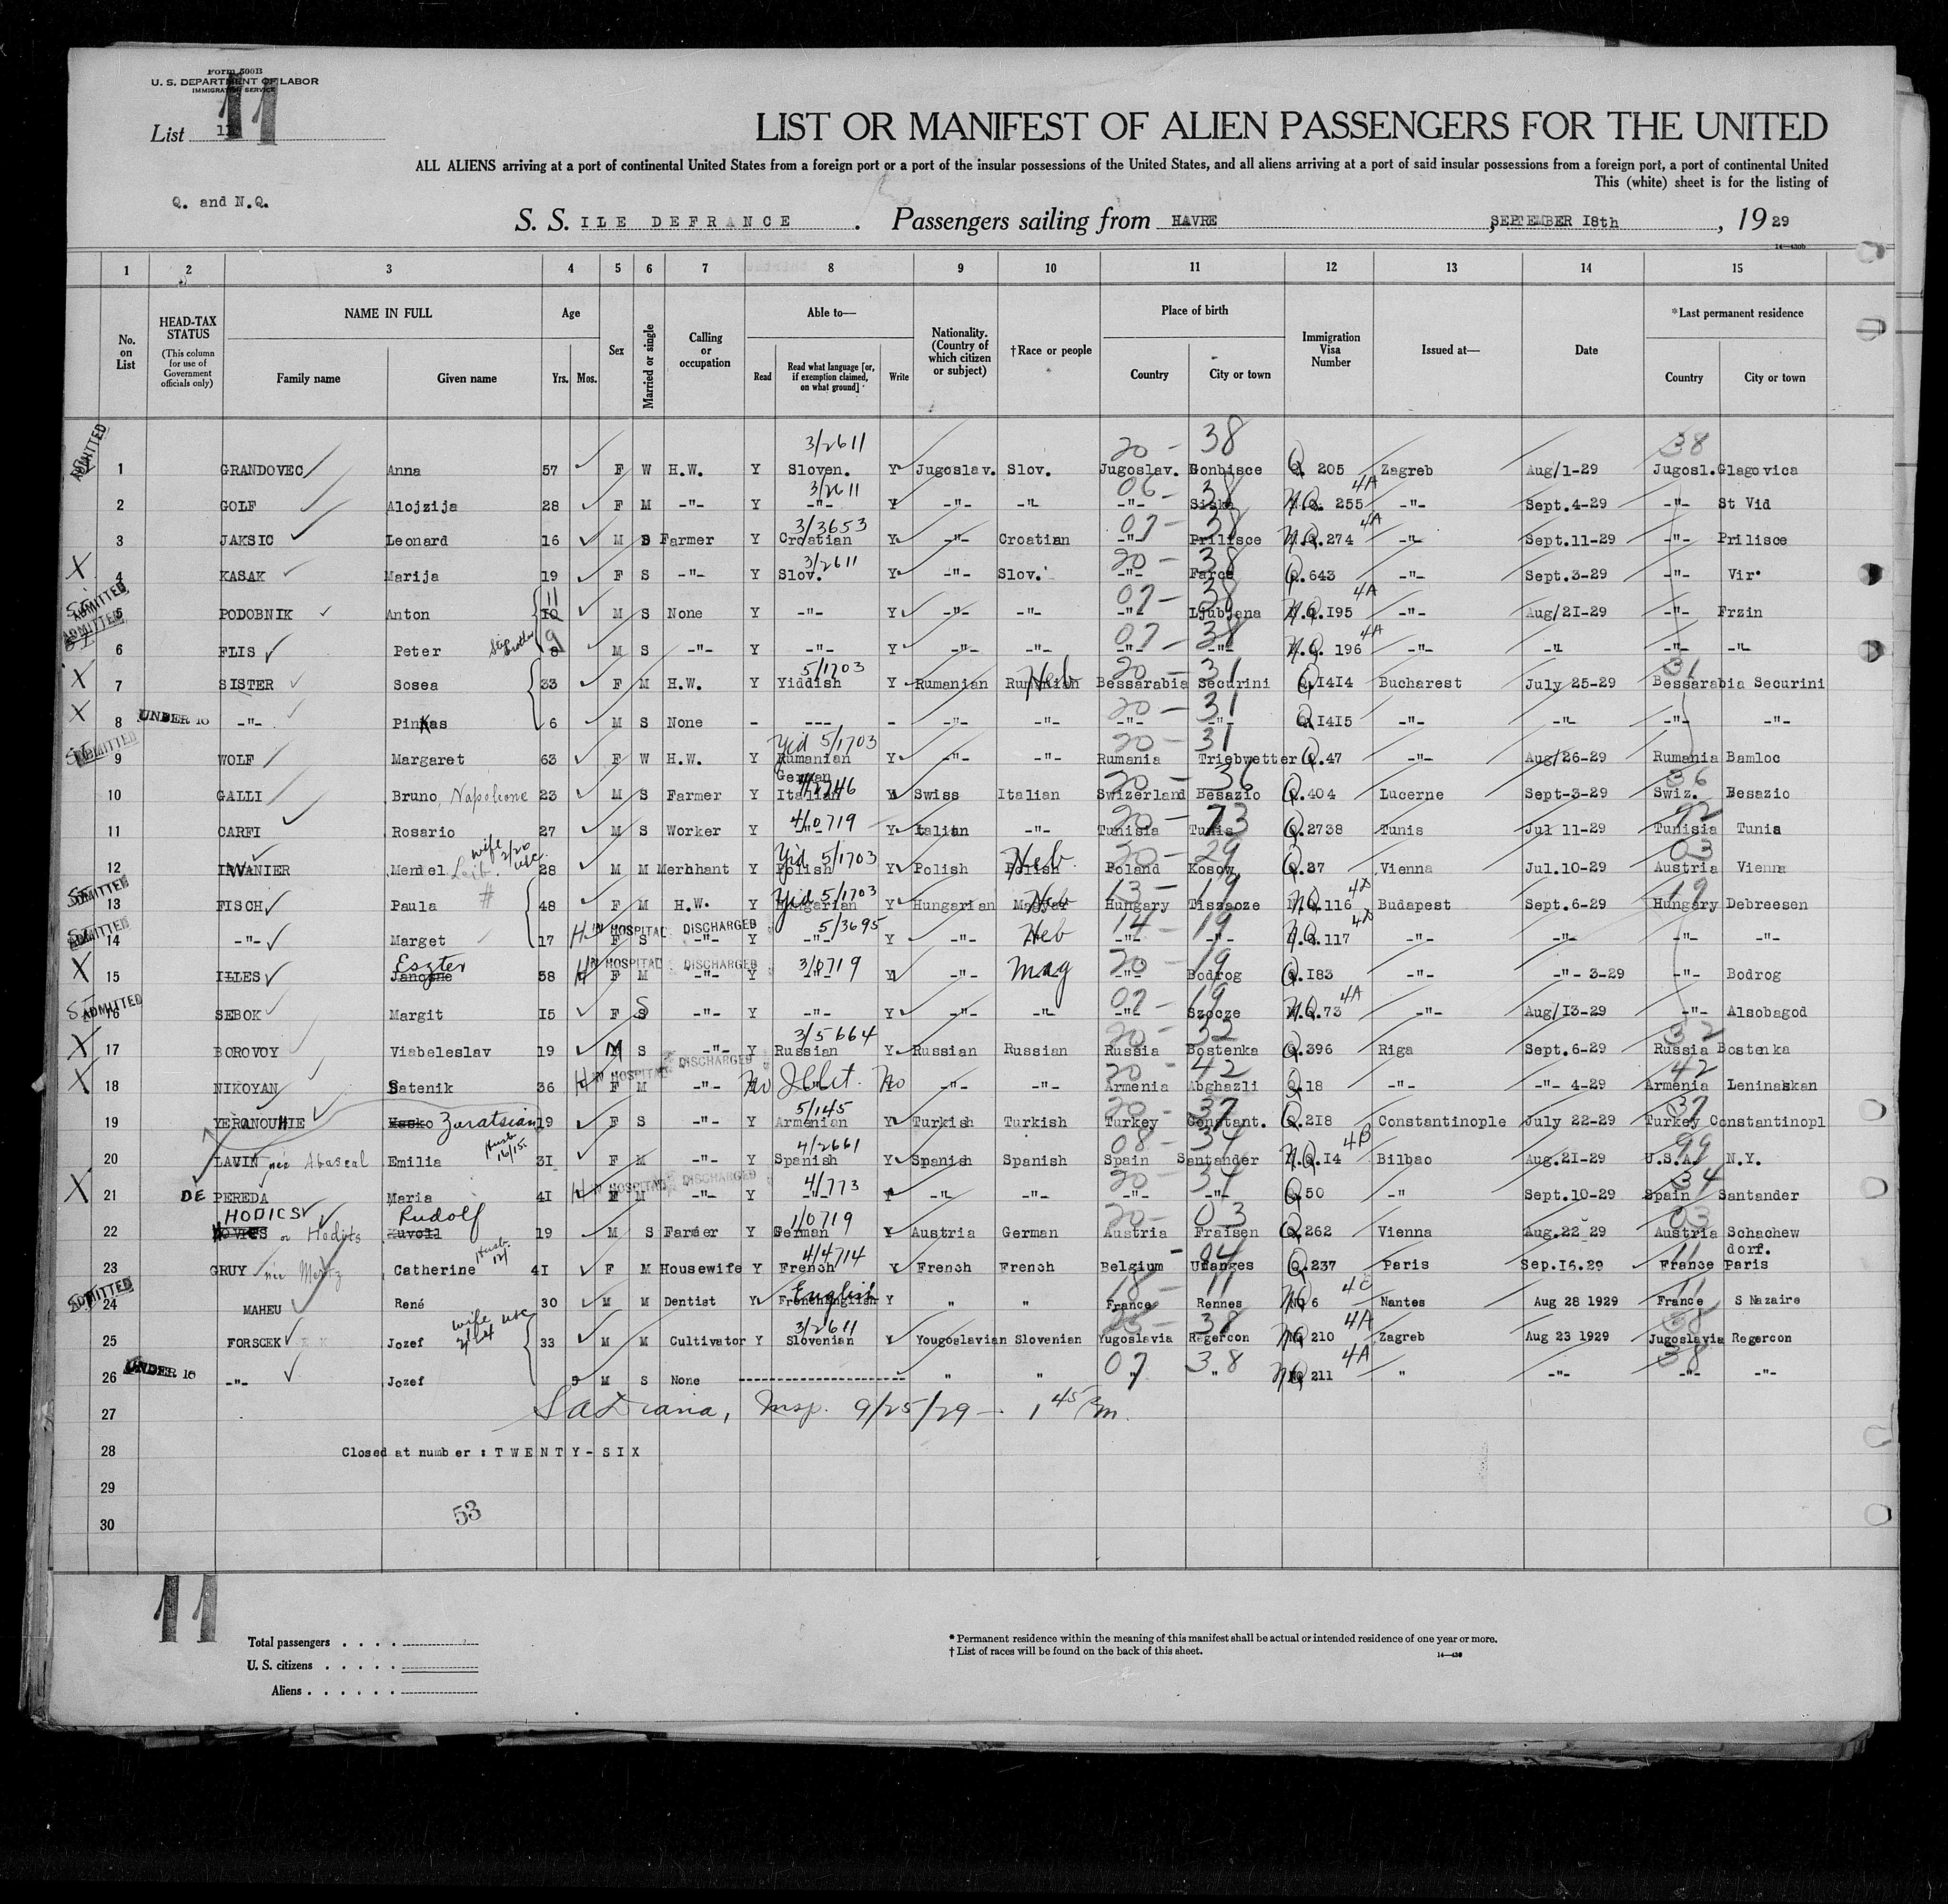 Form 500B
U. S. DEPARTMENT OF LABOR
IMMIGRATION SERVICE
11
List 11
LIST OR MANIFEST OF ALIEN PASSENGERS FOR THE UNITED
ALL ALIENS arriving at a port of continental United States from a foreign port or a port of the insular possessions of the United States, and all aliens arriving at a port of said insular possessions from a foreign port, a port of continental United
This (white) sheet is for the listing of
Q. and N.Q.
S. S. ILE DEFRANCE . Passengers sailing from HAVRE , SEPTEMBER 18th , 19 29
14—430b
1 2 3 4 5 6 7 8 9 10 11 12 13 14 15
No. on List HEAD-TAX STATUS (This column for use of Government officials only) NAME IN FULL Family name Given name Age Yrs. Mos. Sex Married or single Calling or occupation Able to— Read Read what language [or, if exemption claimed, on what ground] Write Nationality. (Country of which citizen or subject) †Race or people Place of birth Country City or town Immigration Visa Number Issued at— Date *Last permanent residence Country City or town
3/2611 20 - 38 38
ADMITTED 1 GRANDOVEC Anna 57 F W H.W. Y Sloven. Y Jugoslav. Slov. Jugoslav. Gonbisce Q. 205 Zagreb Aug/1-29 Jugosl. Glagovica
3/2611 06 - 38 4A
2 GOLF Alojzija 28 F M -"- Y -"- Y -"- -"- -"- Siska N.Q. 255 -"- Sept.4-29 -"- St Vid
3/3653 07 - 38 4A
3 JAKSIC Leonard 16 M S Farmer Y Croatian Y -"- Croatian -"- Prilisce N.Q.274 -"- Sept.11-29 -"- Prilisce
3/2611 20 - 38
X 4 KASAK Marija 19 F S -"- Y Slov. Y -"- Slov. -"- Farce Q.643 -"- Sept.3-29 -"- Vir
11 07 - 38 4A
SI ADMITTED 5 PODOBNIK Anton 10 M S None Y -"- Y -"- -"- -"- Ljubjena N.Q.195 -"- Aug/21-29 -"- Frzin
9 07 - 38 4A
ADMITTED SI 6 FLIS Peter Step brother 8 M S -"- Y -"- Y -"- -"- -"- -"- N.Q. 196 -"- -"- -"- -"-
5/1703 20 - 31 31
X 7 SISTER Sosea 33 F M H.W. Y Yiddish Y Rumanian Rumanian Heb Bessarabia Securini Q.1414 Bucharest July 25-29 Bessarabia Securini
20 - 31
X 8 UNDER 16 -"- Pinkas 6 M S None - --- - -"- -"- -"- -"- Q.1415 -"- -"- -"- -"-
Yid 5/1703 20 - 31
SI ADMITTED 9 WOLF Margaret 63 F W H.W. Y Rumanian German Y -"- -"- Rumania Triebwetter Q.47 -"- Aug/26-29 Rumania Bamloc
4/2746 20 - 36 36
10 GALLI Bruno, Napoleone 23 M S Farmer Y Italian Y Swiss Italian Swizerland Besazio Q.404 Lucerne Sept-3-29 Swiz. Besazio
4/0719 20 - 73 92
11 CARFI Rosario 27 M S Worker Y -"- Y Italian -"- Tunisia Tunis Q.2738 Tunis Jul 11-29 Tunisia Tunis
wife 2/20 USC Yid 5/1703 Heb 20 - 29 03
12 Mendel Leib 28 M M Merchant Y Polish Y Polish Polish Poland Kosow Q.37 Vienna Jul.10-29 Austria Vienna
Yid 5/1703 13 - 19 4D 19
SI ADMITTED 13 FISCH Paula # 48 F M H.W. Y Hungarian Y Hungarian Magyar Heb Hungary Tiszaoze N.Q.116 Budapest Sept.6-29 Hungary Debreesen
IN HOSPITAL DISCHARGED 5/3695 14 - 19 4D
SI ADMITTED 14 -"- Marget 17 H F S -"- Y -"- Y -"- Heb -"- -"- N.Q.117 -"- -"- -"- -"-
Eszter IN HOSPITAL DISCHARGED 3/0719 20 - 19
X 15 ILLES Janosne 58 H F M -"- Y -"- Y -"- Mag -"- Bodrog Q.183 -"- -"- 3-29 -"- Bodrog
07 - 19 4A
SI ADMITTED 16 SEBOK Margit 15 F S -"- Y -"- Y -"- -"- -"- Szocze N.Q.73 -"- Aug/13-29 -"- Alsobagod
3/5664 20 - 32 32
X 17 BOROVOY Viabeleslav 19 M S -"- Y Russian Y Russian Russian Russia Bostenka Q.396 Riga Sept.6-29 Russia Bostenka
IN HOSPITAL DISCHARGED 20 - 42 42
X 18 NIKOYAN Satenik 36 H F M -"- No Illit. No -"- -"- Armenia Abghazli Q.18 -"- -"- 4-29 Armenia Leninakan
5/145 20 - 37 37
19 YERANOUHIE Hasko Zaratsian 19 F S -"- Y Armenian Y Turkish Turkish Turkey Constant. Q.218 Constantinople July 22-29 Turkey Constantinopl
Husb. 16/15 4/2661 08 - 34 4B 99
20 LAVIN née Abascal Emilia 31 F M -"- Y Spanish Y Spanish Spanish Spain Santander N.Q.14 Bilbao Aug.21-29 U.S.A. N.Y.
IN HOSPITAL DISCHARGED 4/773 20 - 34 34
X 21 DE PEREDA Maria 41 H F M -"- Y -"- Y -"- -"- -"- -"- Q.50 -"- Sept.10-29 Spain Santander
HODICS Rudolf 1/0719 20 - 03 03
22 or Hodits Kuvoll 19 M S Farmer Y German Y Austria German Austria Fraisen Q.262 Vienna Aug.22 29 Austria Schachew dorf.
Husb. 12/ 4/4714 - 04 11
23 GRUY née Catherine 41 F M Housewife Y French Y French French Belgium Uhanges Q.237 Paris Sep.16.29 France Paris
English 18 - 11 4C 11
ADMITTED 24 MAHEU René 30 M M Dentist Y French English Y " " France Rennes NQ 6 Nantes Aug 28 1929 France S Nazaire
wife 2/24 USC 3/2611 25 - 38 4A 38
25 FORSCEK Jozef 33 M M Cultivator Y Slovenian Y Yougoslavian Slovenian Yugoslavia Regercon NQ 210 Zagreb Aug 23 1929 Jugoslavia Regercon
07 38 4A 38
26 UNDER 16 -"- Jozef 5 M S None " " " " NQ 211 " -"- -"- -"-
27 Insp. 9/25/29 - 1 45 Pm.
28 Closed at number : TWENTY-SIX
29
53
30
11
Total passengers . . . .
U. S. citizens . . . . .
Aliens . . . . . .
* Permanent residence within the meaning of this manifest shall be actual or intended residence of one year or more.
† List of races will be found on the back of this sheet.
14—430